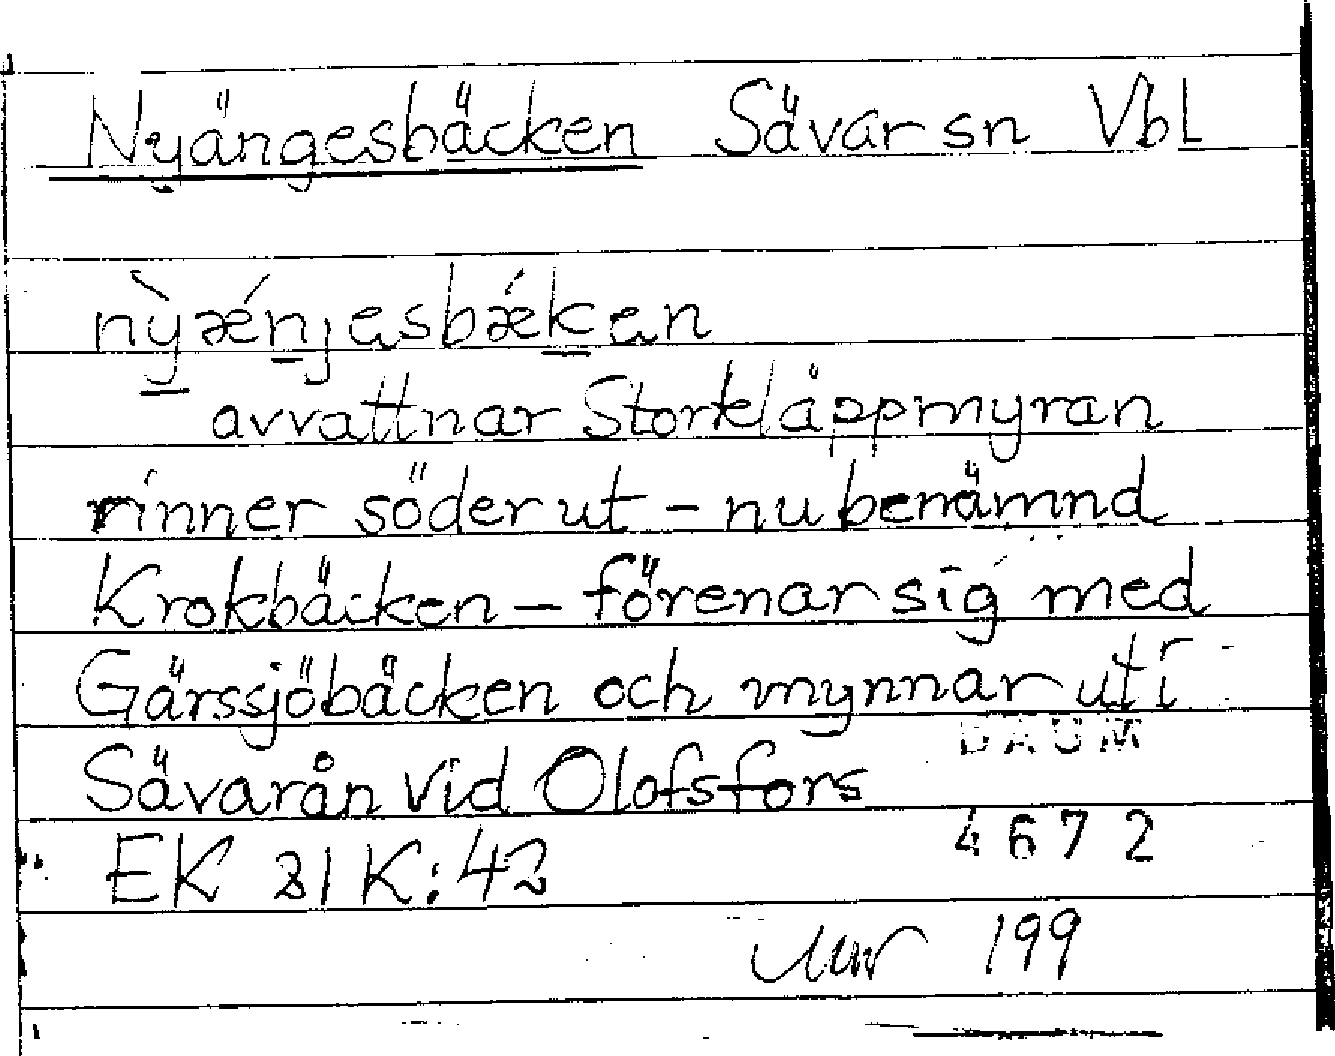 Nyängesbäcken Sävar sn Vbl
nỳǽnjesbǽken
avvattnar Storkläppmyran
rinner söderut - nu benämnd
Krokbäcken - förenar sig med
Gärssjöbäcken och mynnar uti
DAUM
Sävarån vid Olofsfors
4672
EK 21K:42
199